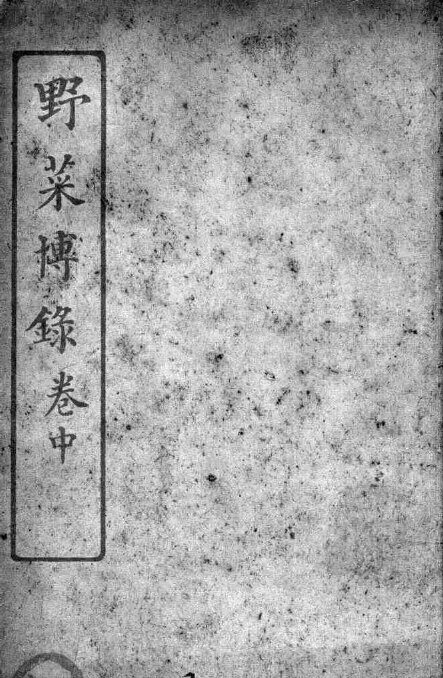 野菜博錄卷中